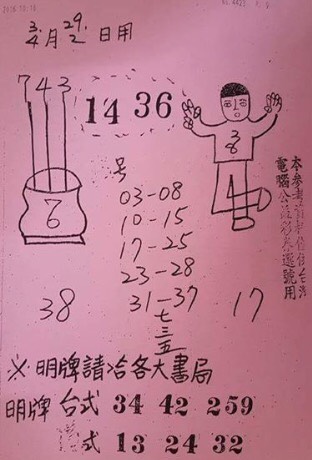 3/4月29/2日用
743
14 36
38
6
4
号
03-08
10-15
17-25
23-28
31-37
七三五
38
17
本參考資料
電腦公益彩券選號用
※明牌請洽各大書局
明牌 台式 34 42 259
式 13 24 32